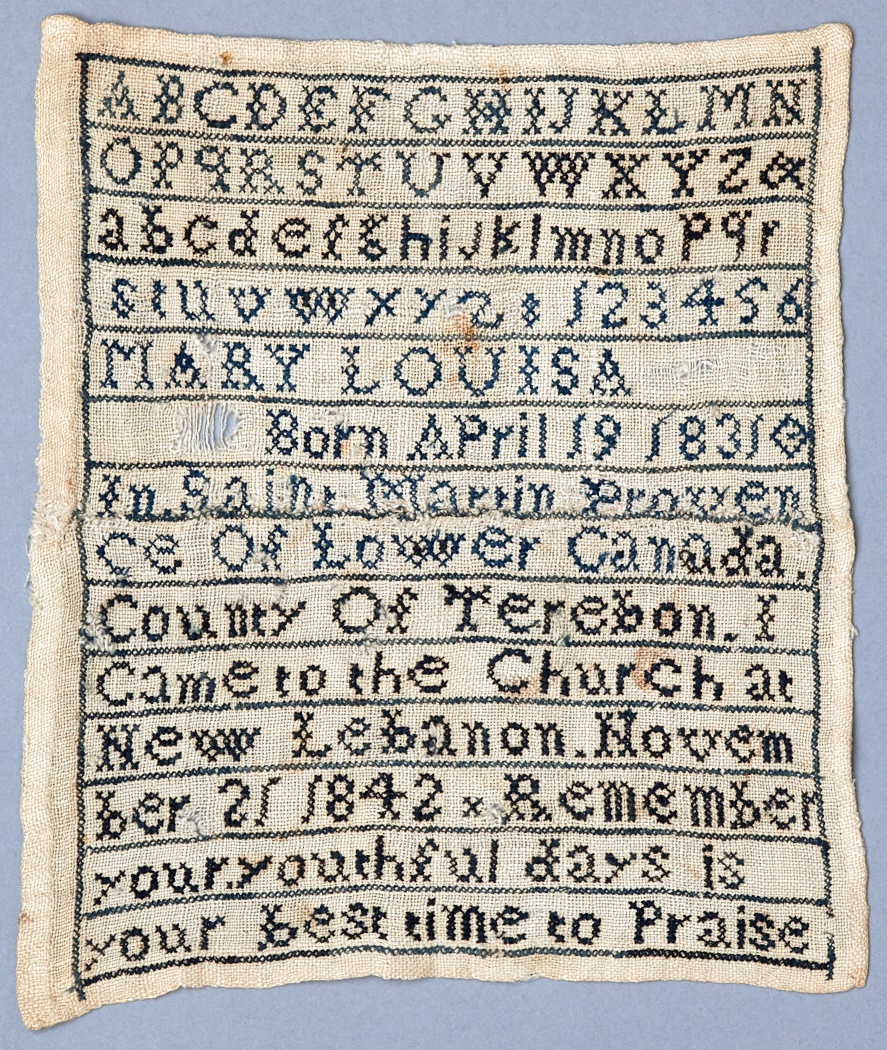 ABCDEFGHIJKLMN
OPQRSTUVWXYZ&
abcdefghijklmnopqr
stuvwxyz 123456
MARY LOUISA
Born APril 19 1831
In. Saint Martin Proven
ce Of Lower Canada.
County Of Terebon. I
Came to the Church at
New Lebanon. Novem
ber 21 1842 x Remember
your youthful days is
your best time to Praise